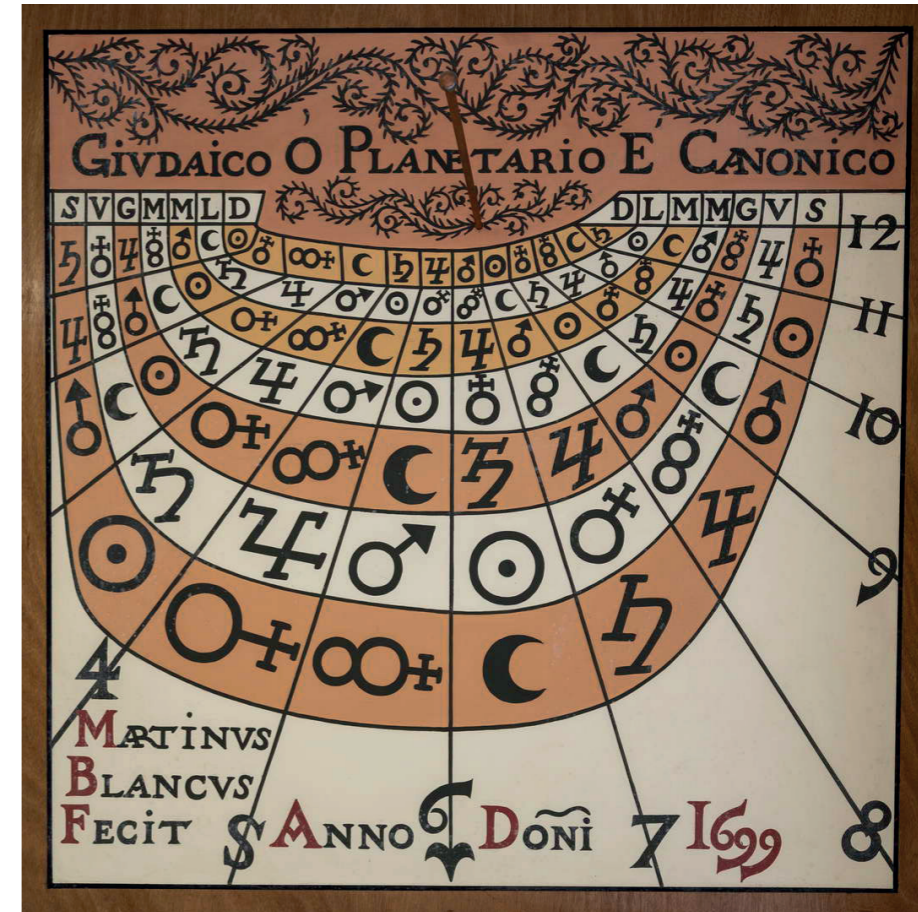 GIVDAICO Ó PLANETARIO E CANONICO
S V G M M L D
D L M M G V S
12
11
10
9
4
MARTINVS
BLANCVS
FECIT
S ANNO 6 DOÑI 7 1699 8